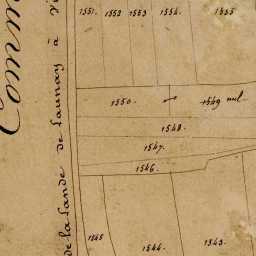 1551. 1552 1553 1554. 1555
1550. 1549
1548.
1547.
1546.
1545 1544. 1543.
de la Lande de Launay à
Comm